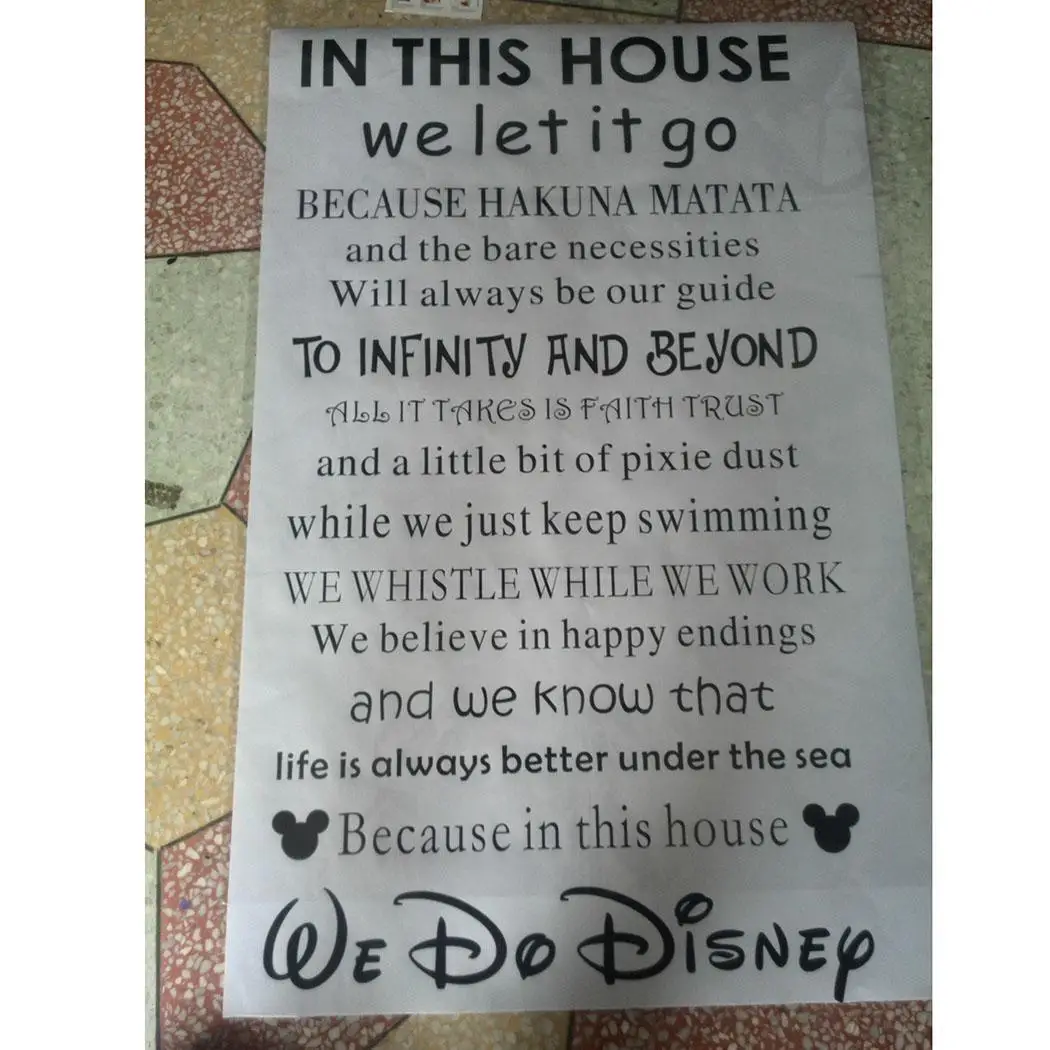 IN THIS HOUSE
we let it go
BECAUSE HAKUNA MATATA
and the bare necessities
Will always be our guide
TO INFINITY AND BEYOND
ALL IT TAKES IS FAITH TRUST
and a little bit of pixie dust
while we just keep swimming
WE WHISTLE WHILE WE WORK
We believe in happy endings
and we know that
life is always better under the sea
Because in this house
WE DO DISNEY